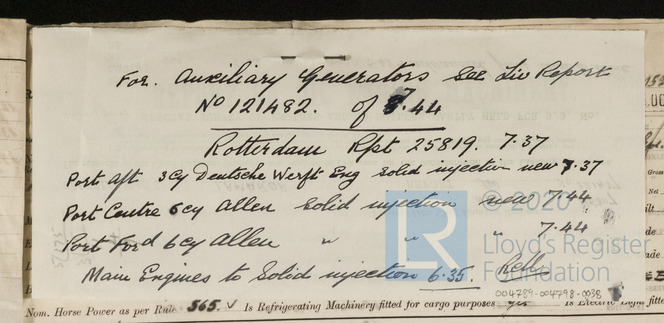 For. Auxiliary Generators see Liv Report
No 121482. of 7.44
Rotterdam Rpt 25819. 7.37
Port Aft 3 Cy Deutsche Werft Eng Solid injection new 7.37
Port Centre 6 cy Allen Solid injection new 7.44
Port Ford 6 cy Allen " " " 7.44
Main Engines to Solid injection 6.35.
© 2020
LR
Lloyd's Register
Foundation
004789-004798-0038
Nom. Horse Power as per Rule 565. Is Refrigerating Machinery fitted for cargo purposes yes Is Electric Light fitte